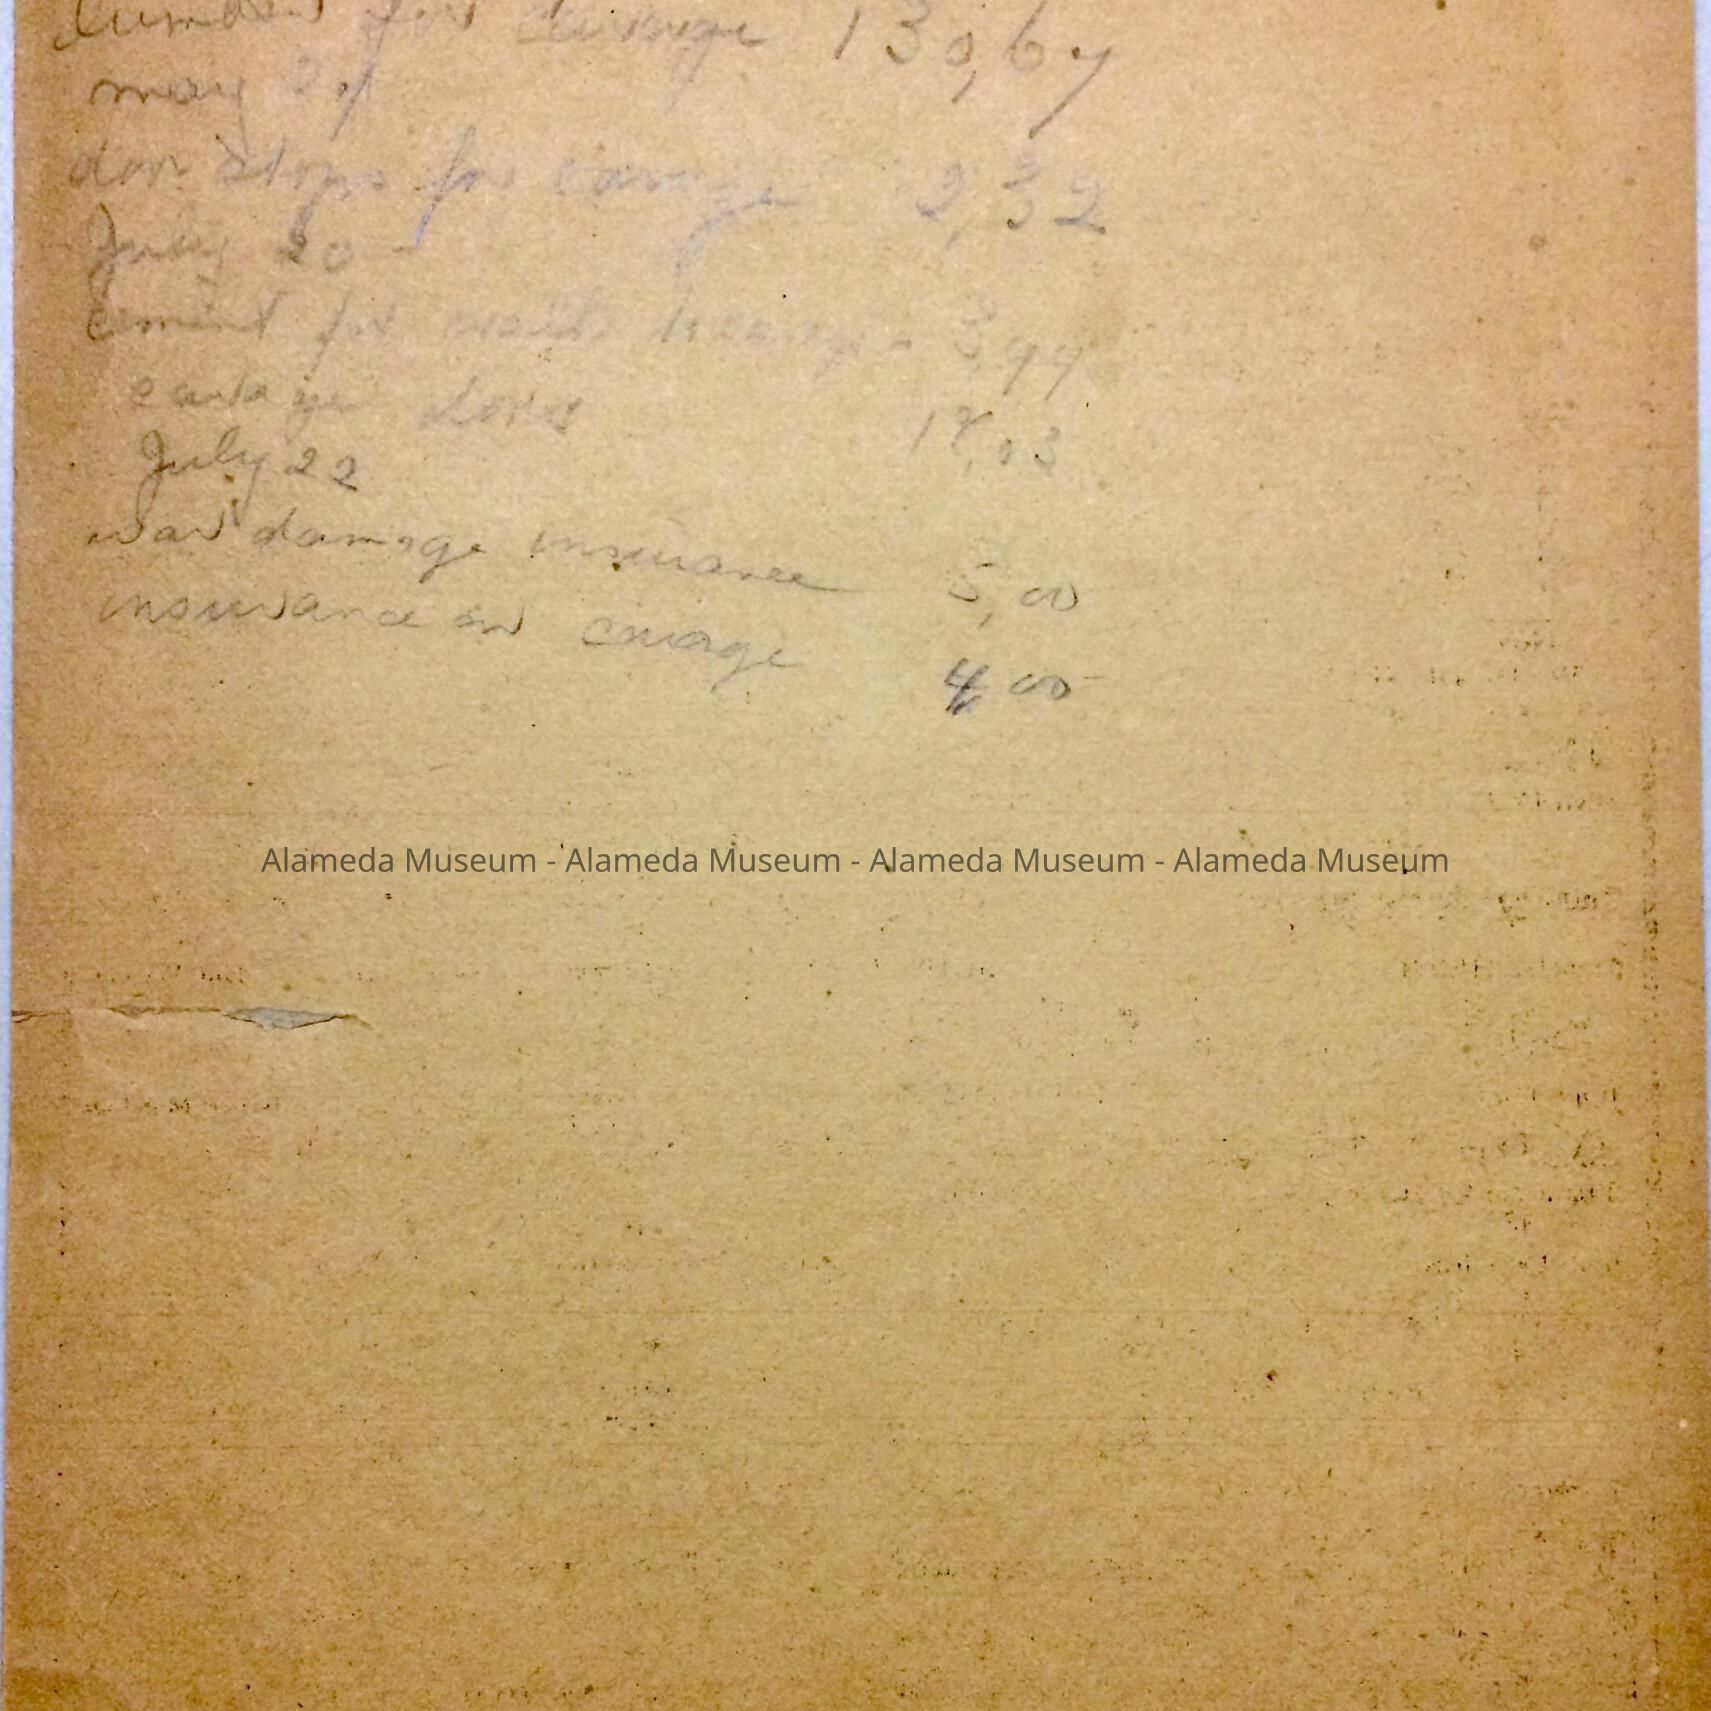 lumber for carage 130,67
may 21
dor stops for carage 2,32
July 20 -
cement for walk to carage - 3 99
carage dores 18,03
July 22
war damage insurance 5,00
insurance on carage 4 00
Alameda Museum - Alameda Museum - Alameda Museum - Alameda Museum